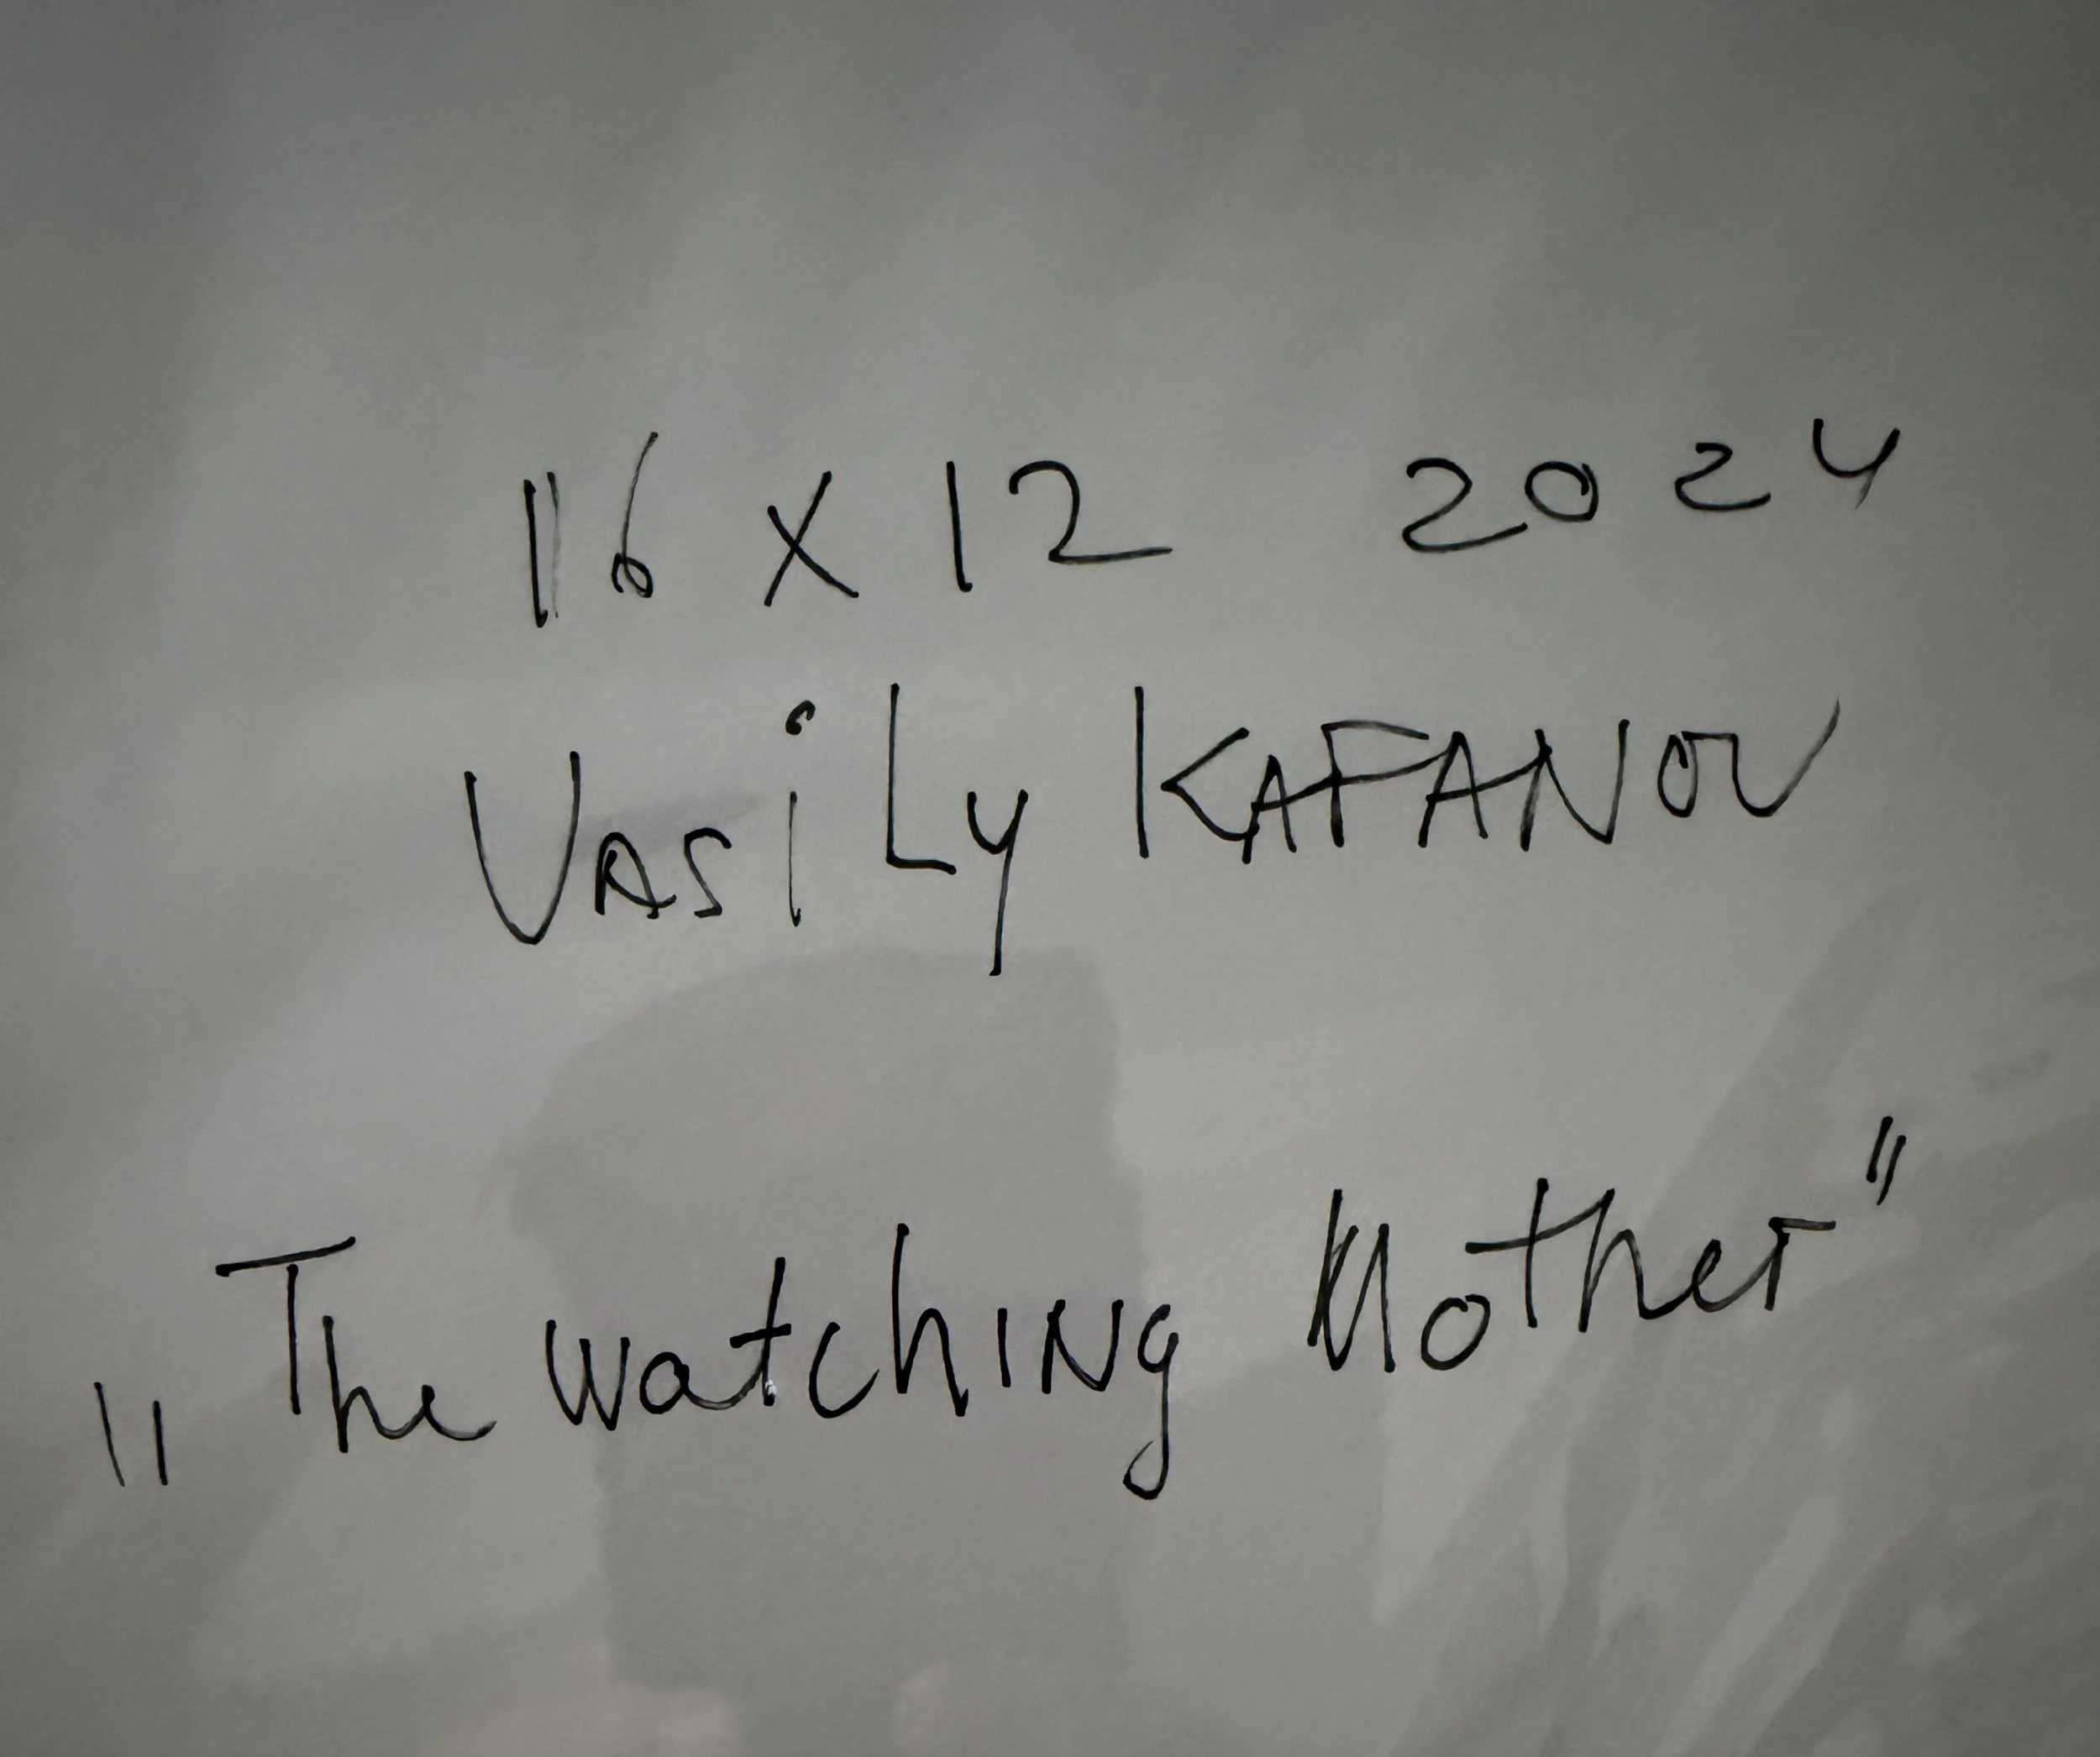 16 x 12 2024
VASiLy KAFANOV
„The watchING Mother"